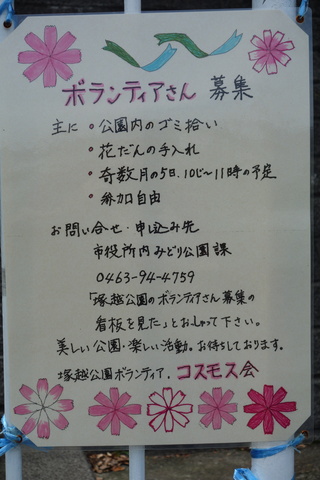 ボランティアさん 募集
主に ・公園内のゴミ拾い
・花だんの手入れ
・奇数月の5日.10じ~11時の予定
・参加自由
お問い合せ・申込み先
市役所内みどり公園課
0463-94-4759
「塚越公園のボランティアさん募集の
看板を見た」とおしゃって下さい。
美しい公園・楽しい活動。お待ちしております。
塚越公園ボランティア. コスモス会